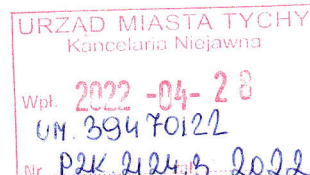 URZĄD MIASTA TYCHY
Kancelaria Niejawna
Wpł. 2022 -04- 28
UM. 39470122
Nr P2K 2124.3 2022